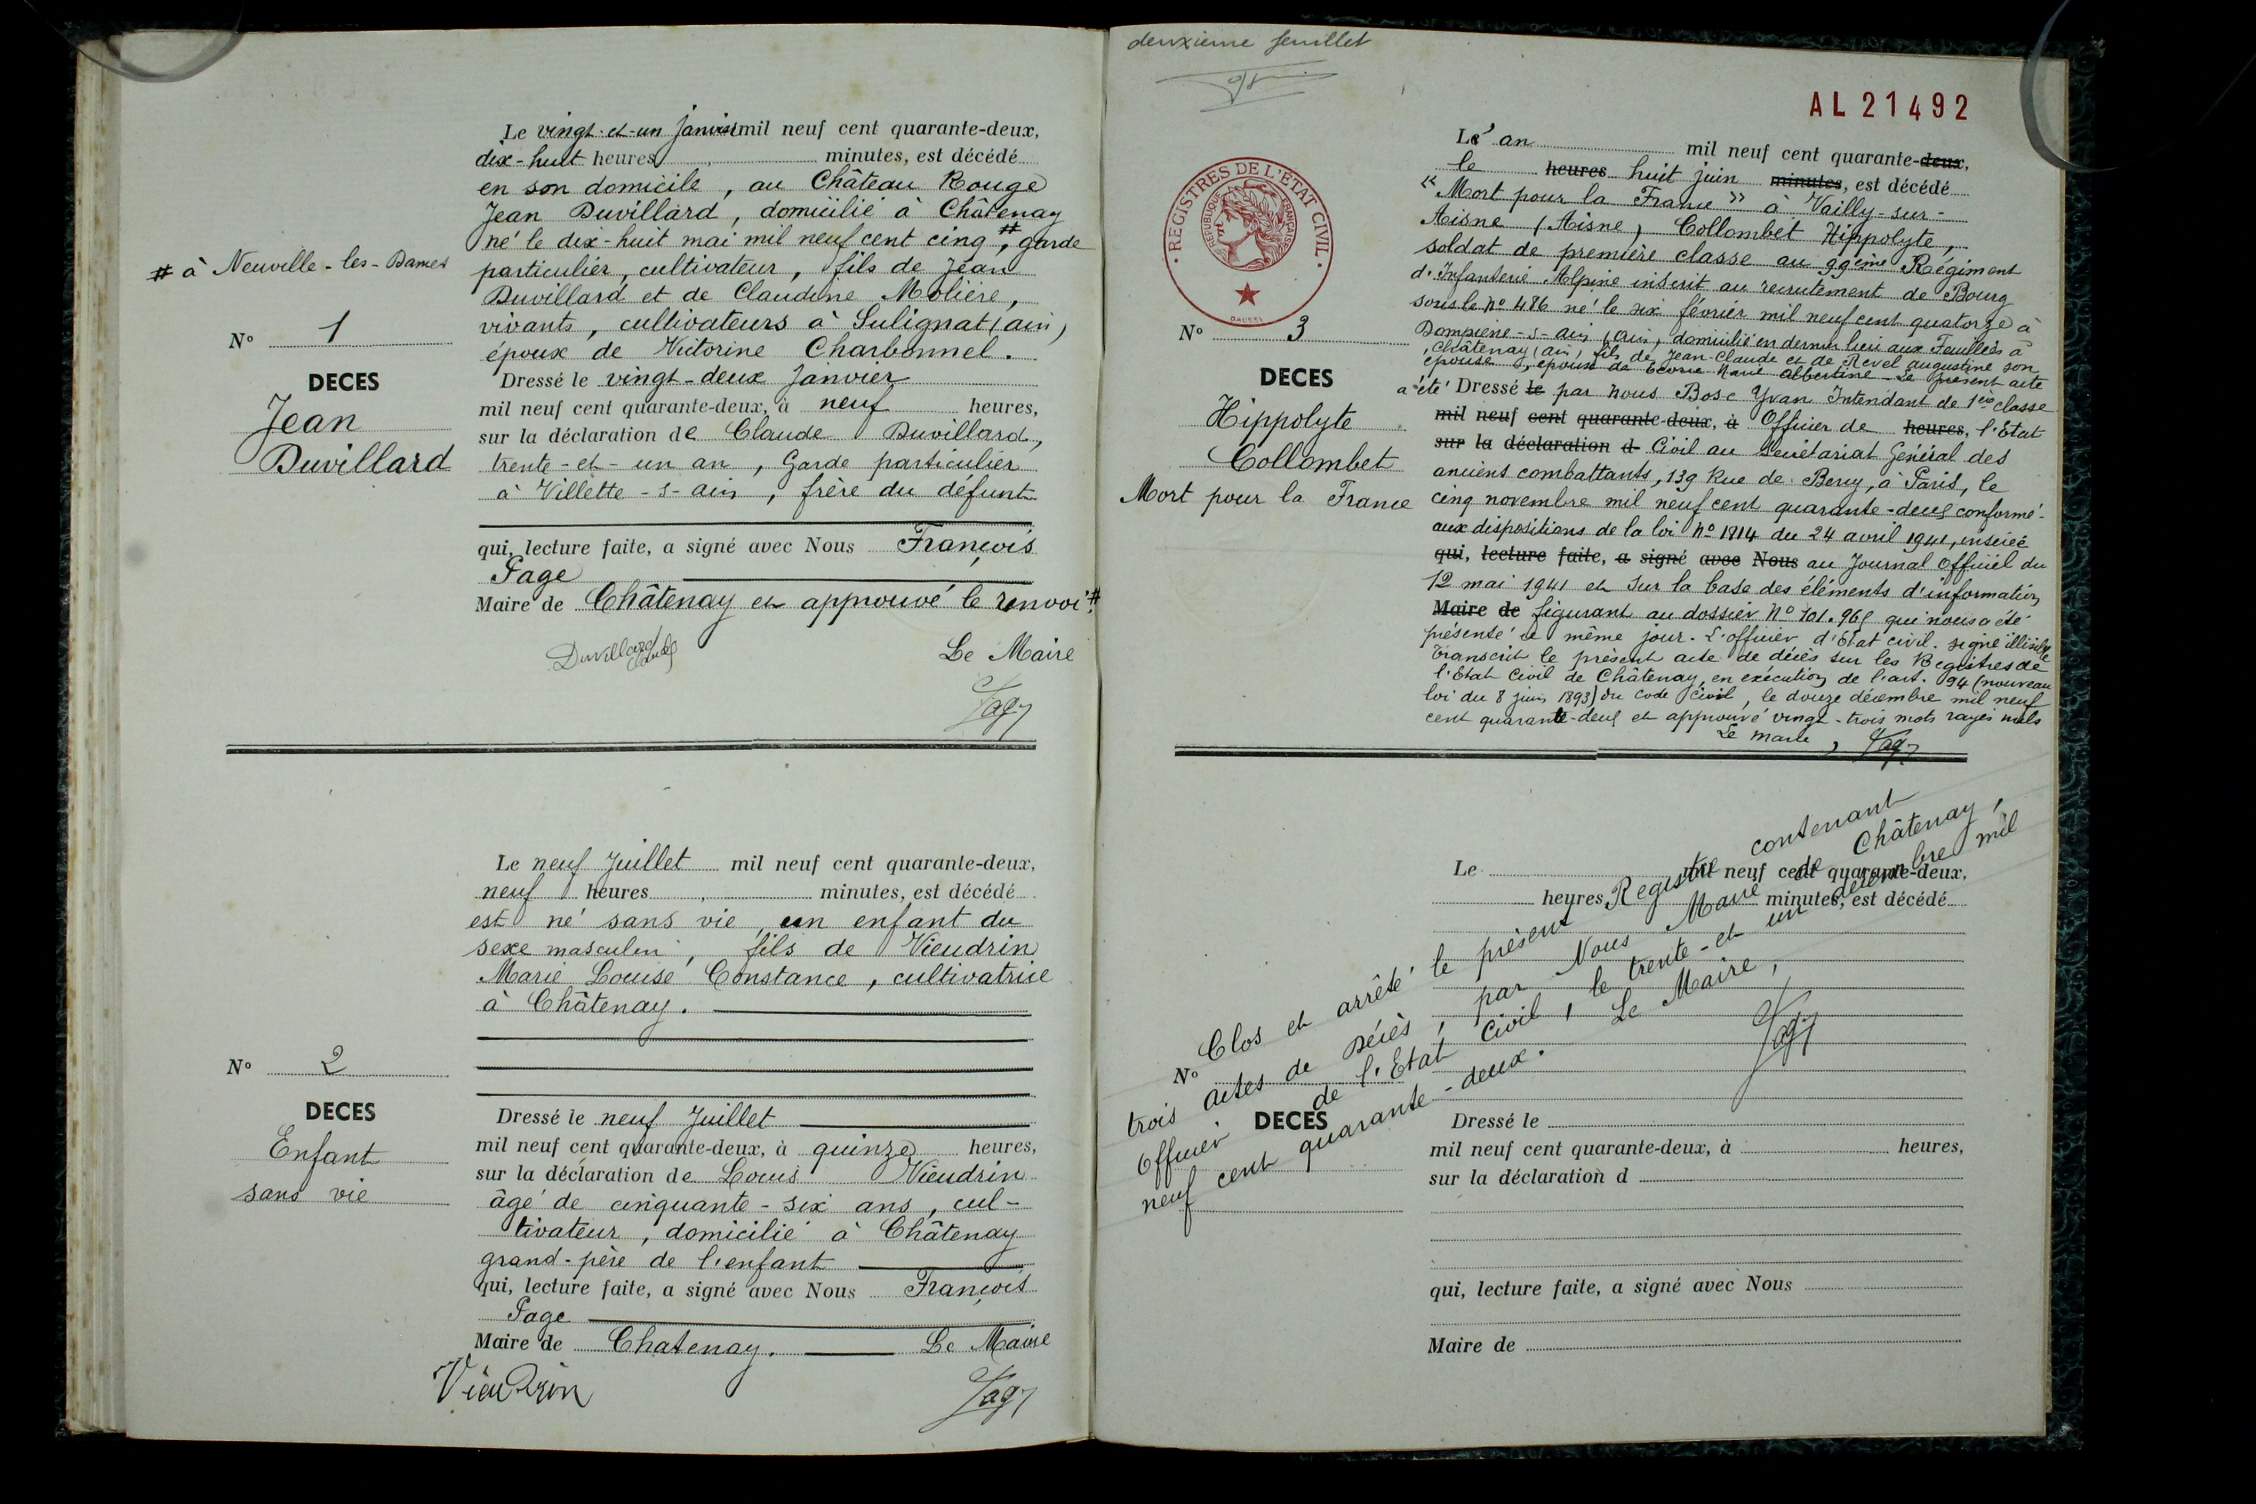 Le vingt-et-un janvier mil neuf cent quarante-deux,
dix-huit heures minutes, est décédé
en son domicile, au Château Rouge
Jean Duvillard, domicilié à Châtenay
né le dix-huit mai mil neuf cent cinq #, garde
# à Neuville-les-Dames
particulier, cultivateur, fils de Jean
Duvillard et de Claudine Molière,
vivants, cultivateurs à Sulignat (ain)
époux de Victorine Charbonnel.
N° 1
DECES
Jean
Duvillard
Dressé le vingt-deux Janvier
mil neuf cent quarante-deux, à neuf heures,
sur la déclaration de Claude Duvillard,
trente-et-un an, Garde particulier
à Villette-s-ain, frère du défunt
qui, lecture faite, a signé avec Nous François
Page
Maire de Châtenay et approuvé le renvoi #.
Duvillard Claude
Le Maire
Page
Le neuf Juillet mil neuf cent quarante-deux,
neuf heures minutes, est décédé
est né sans vie, un enfant du
sexe masculin, fils de Vieudrin
Marie Louise Constance, cultivatrice
à Châtenay.
N° 2
DECES
Enfant
sans vie
Dressé le neuf Juillet
mil neuf cent quarante-deux, à quinze heures,
sur la déclaration de Louis Vieudrin
âgé de cinquante-six ans, cul-
tivateur, domicilié à Châtenay
grand-père de l'enfant
qui, lecture faite, a signé avec Nous François
Page
Maire de Chatenay. Le Maire
Vieudrin
Page
deuxième feuillet
AL 21492
REGISTRES DE L'ÉTAT CIVIL
RÉPUBLIQUE FRANÇAISE
L'an mil neuf cent quarante-deux,
le heures huit juin minutes, est décédé
"Mort pour la France" à Vailly-sur-
Aisne (Aisne) Collombet Hippolyte,
soldat de première classe au 99ème Régiment
d'Infanterie Alpine inscrit au recrutement de Bourg
sous le n° 486 né le six février mil neuf cent quatorze à
Dompierre-s-ain (Ain, domicilié en dernier lieu aux Feuillées à
Châtenay (ain) fils de Jean-Claude et de Revel augustine son
épouse, époux de Ecorce Marie Albertine - Le présent acte
a été Dressé le par nous Bosc Yvan Intendant de 1ere classe
mil neuf cent quarante-deux, à Officier de heures, l'Etat
sur la déclaration d Civil au Secrétariat Général des
anciens combattants, 139 Rue de Bercy, à Paris, le
cinq novembre mil neuf cent quarante-deux conformé-
aux dispositions de la loi n° 1814 du 24 avril 1941, insérée
qui, lecture faite, a signé avec Nous au Journal Officiel du
12 mai 1941 et sur la base des éléments d'information
Maire de figurant au dossier n° 701.965 qui nous a été
présenté le même jour. L'officier d'Etat civil. signé illisible
Transcrit le présent acte de décès sur les Registres de
l'Etat Civil de Châtenay, en exécution de l'art. 94 (nouveau
loi du 8 juin 1893) du Code civil, le douze décembre mil neuf
cent quarante-deux et approuvé vingt-trois mots rayés nuls
Le Maire, Page
N° 3
DECES
Hippolyte
Collombet
Mort pour la France
Le mil neuf cent quarante-deux,
heures minutes, est décédé
Clos et arrêté le présent Registre contenant
trois actes de décès, par Nous Maire de Châtenay,
Officier de l'Etat Civil, le trente-et un décembre mil
neuf cent quarante-deux. Le Maire,
Page
N°
DECES
Dressé le
mil neuf cent quarante-deux, à heures,
sur la déclaration d
qui, lecture faite, a signé avec Nous
Maire de